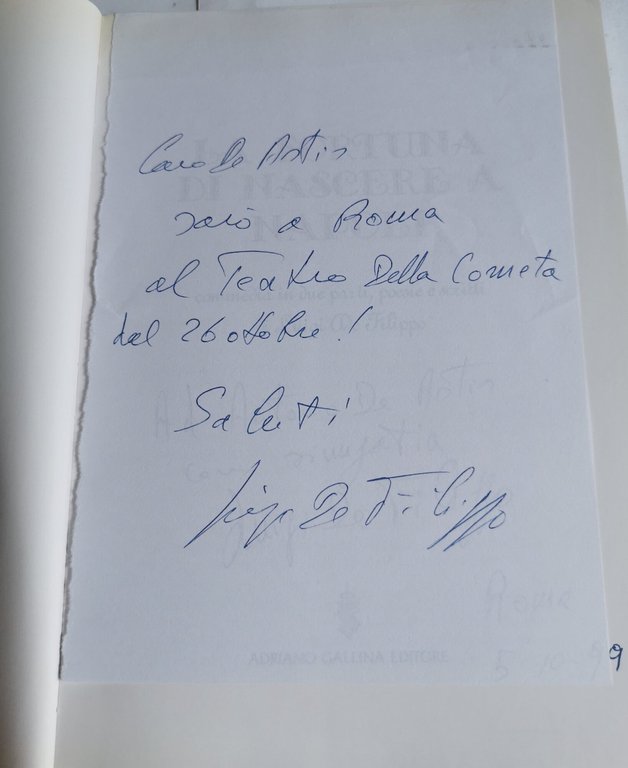 Caro De Artis
sarò a Roma
al Teatro Della Cometa
dal 26 ottobre!
Saluti
Luigi De Filippo
LA FORTUNA
DI NASCERE A
NAPOLI
commedia in due parti, poesie e scritti
di Luigi De Filippo
De Artis
con simpatia
Roma
5-10-99
ADRIANO GALLINA EDITORE